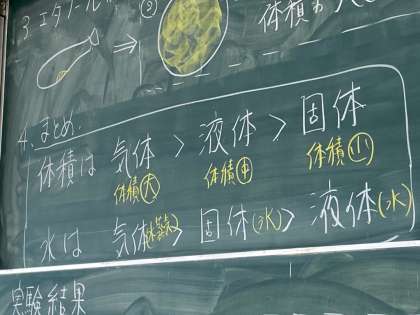 3. エタノール
②
⇒
体積が大
4. まとめ.
体積は 気体 > 液体 > 固体
体積大 体積中 体積小
水は 気体(水蒸気)> 固体(氷)> 液体(水)
実験結果